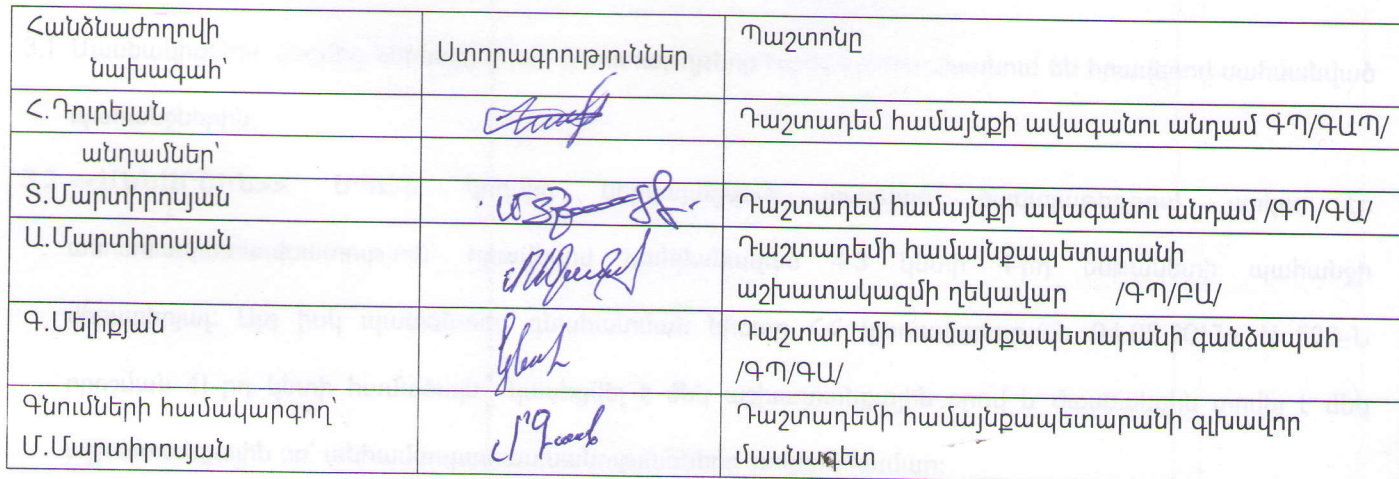 Հանձնաժողովի
նախագահ՝
Ստորագրություններ
Պաշտոնը
Հ.Դուրեյան
Դաշտադեմ համայնքի ավագանու անդամ ԳՊ/ԳԱՊ/
անդամներ՝
Տ.Մարտիրոսյան
Դաշտադեմ համայնքի ավագանու անդամ /ԳՊ/ԳԱ/
Ա.Մարտիրոսյան
Դաշտադեմի համայնքապետարանի
աշխատակազմի ղեկավար /ԳՊ/ԲԱ/
Գ.Մելիքյան
Դաշտադեմի համայնքապետարանի գանձապահ
/ԳՊ/ԳԱ/
Գնումների համակարգող՝
Մ.Մարտիրոսյան
Դաշտադեմի համայնքապետարանի գլխավոր
մասնագետ